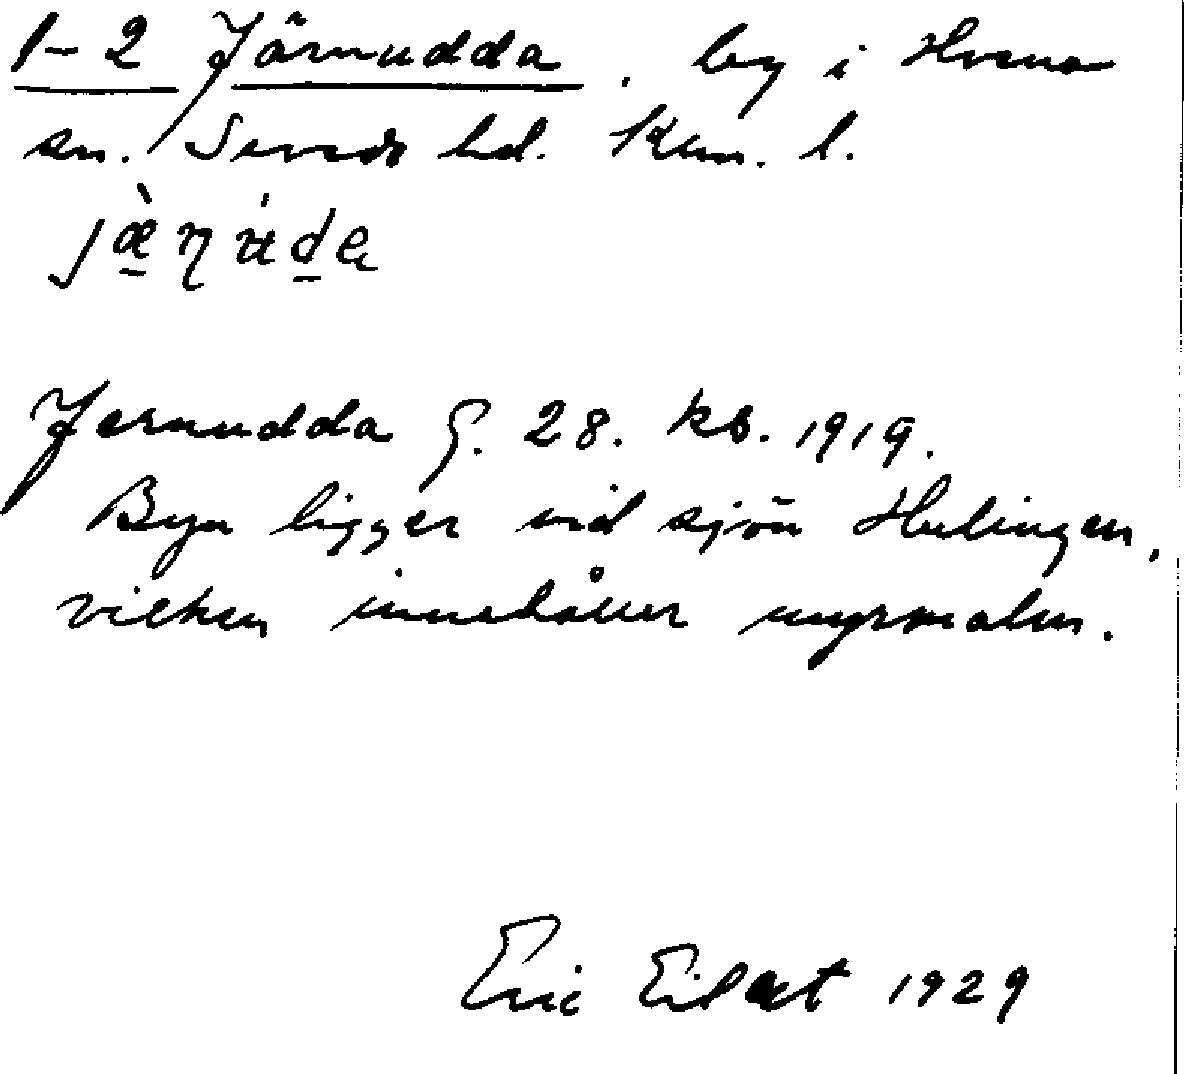 1–2 Järnudda, by i Hvena
sn. Sevede hd. Kalm. l.
Jernudda G. 28. kb. 1919.
Byn ligger vid sjön Hulingen,
vilken innehåller myrmalm.
Eric Eilert 1929